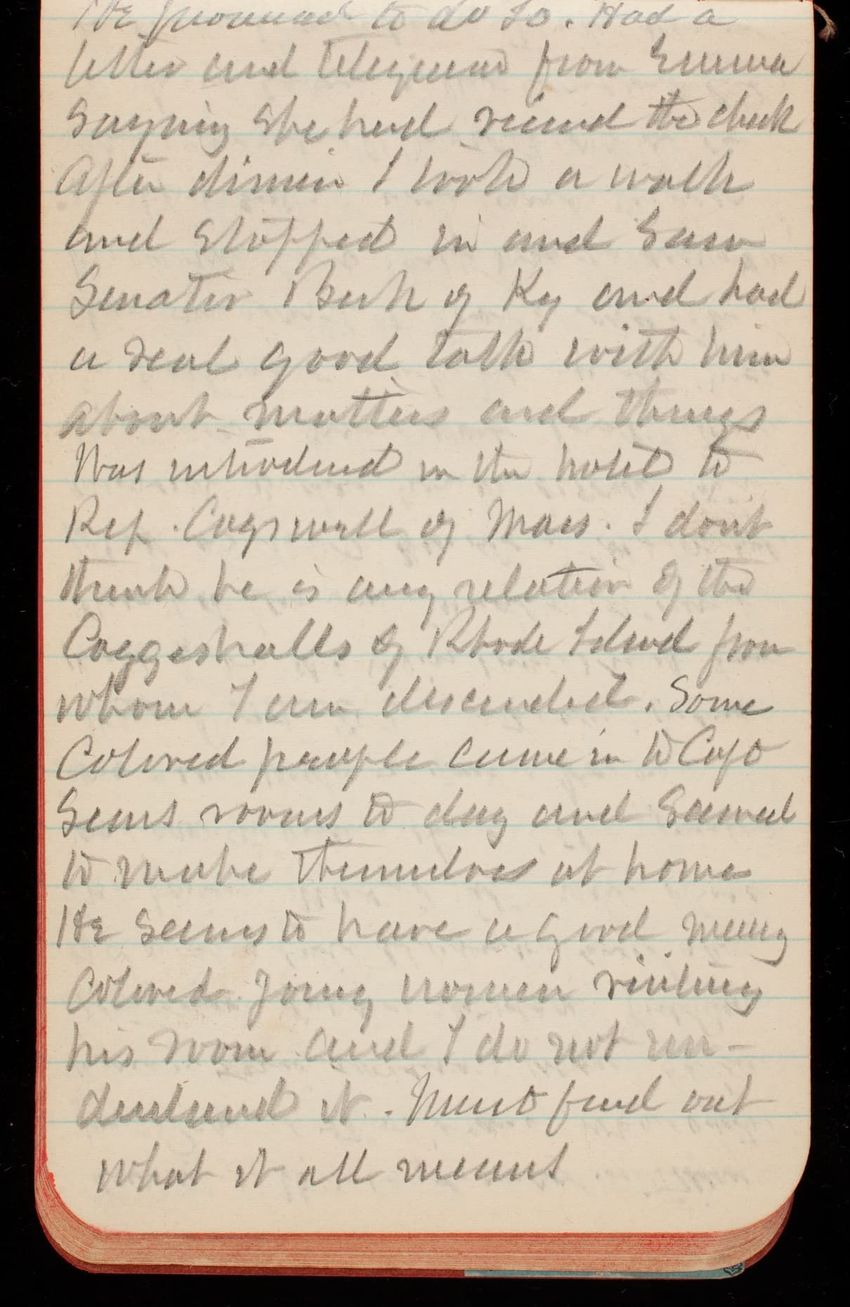 He promised to do so. Had a
letter and telegram from Emma
saying she had received the check
After dinner I took a walk
and stopped in and saw
Senator Beck of Ky and had
a real good talk with him
about matters and things
Was introduced in the hotel to
Rep. Cogswell of Mass. I don't
think he is any relation of the
Coggeshalls of Rhode Island from
whom I am descended. Some
Colored people came in to Capt
rooms to day and seemed
to make themselves at home
He seems to have a good many
colored young women visiting
his room and I do not un-
derstand it. Must find out
what it all means